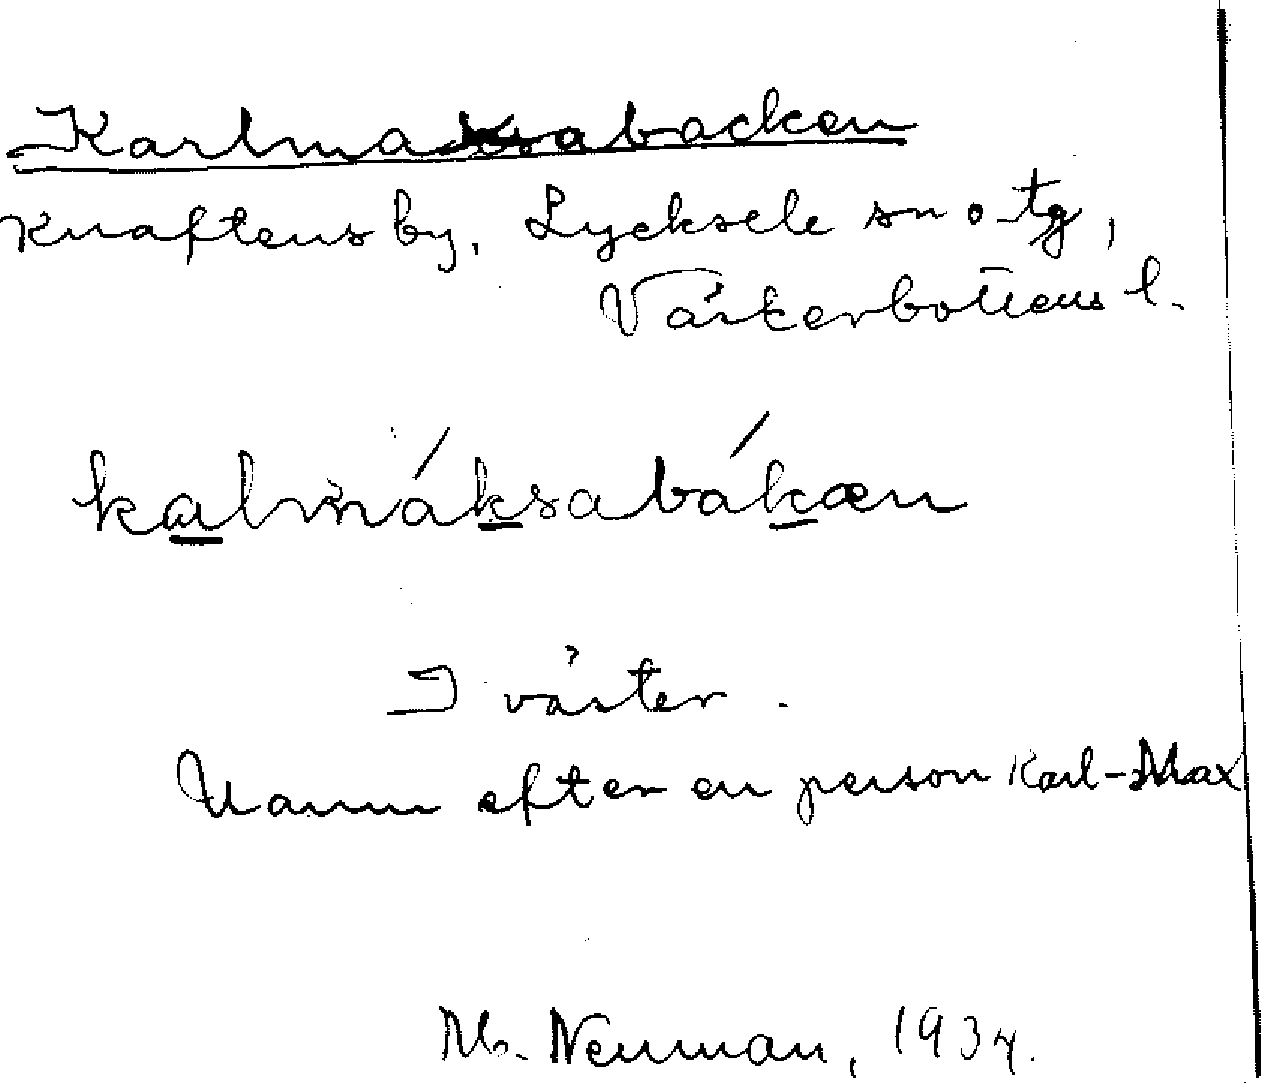 Karlmaxsabacken
Knaftens by, Lycksele sn o. tg,
Västerbottens l.
kalmáksabákæn
I väster.
Namn efter en person Karl-Max
M. Neuman, 1934.